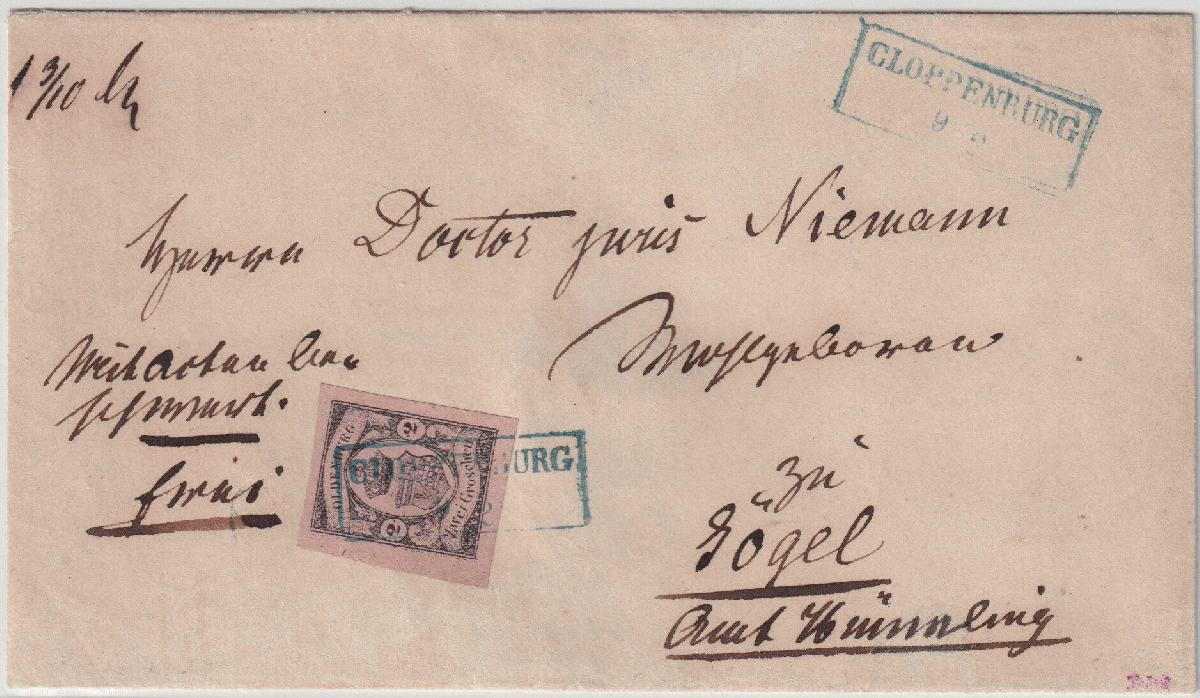 1 3/10 Lt
CLOPPENBURG
9
Herrn Doctor juris Niemann
Wohlgeboren
Mit Acten be-
schwert.
frei
OLDENBURG
2
2
Zwei Groschen
CLOPPENBURG
zu
Sögel
Amt Hümmling